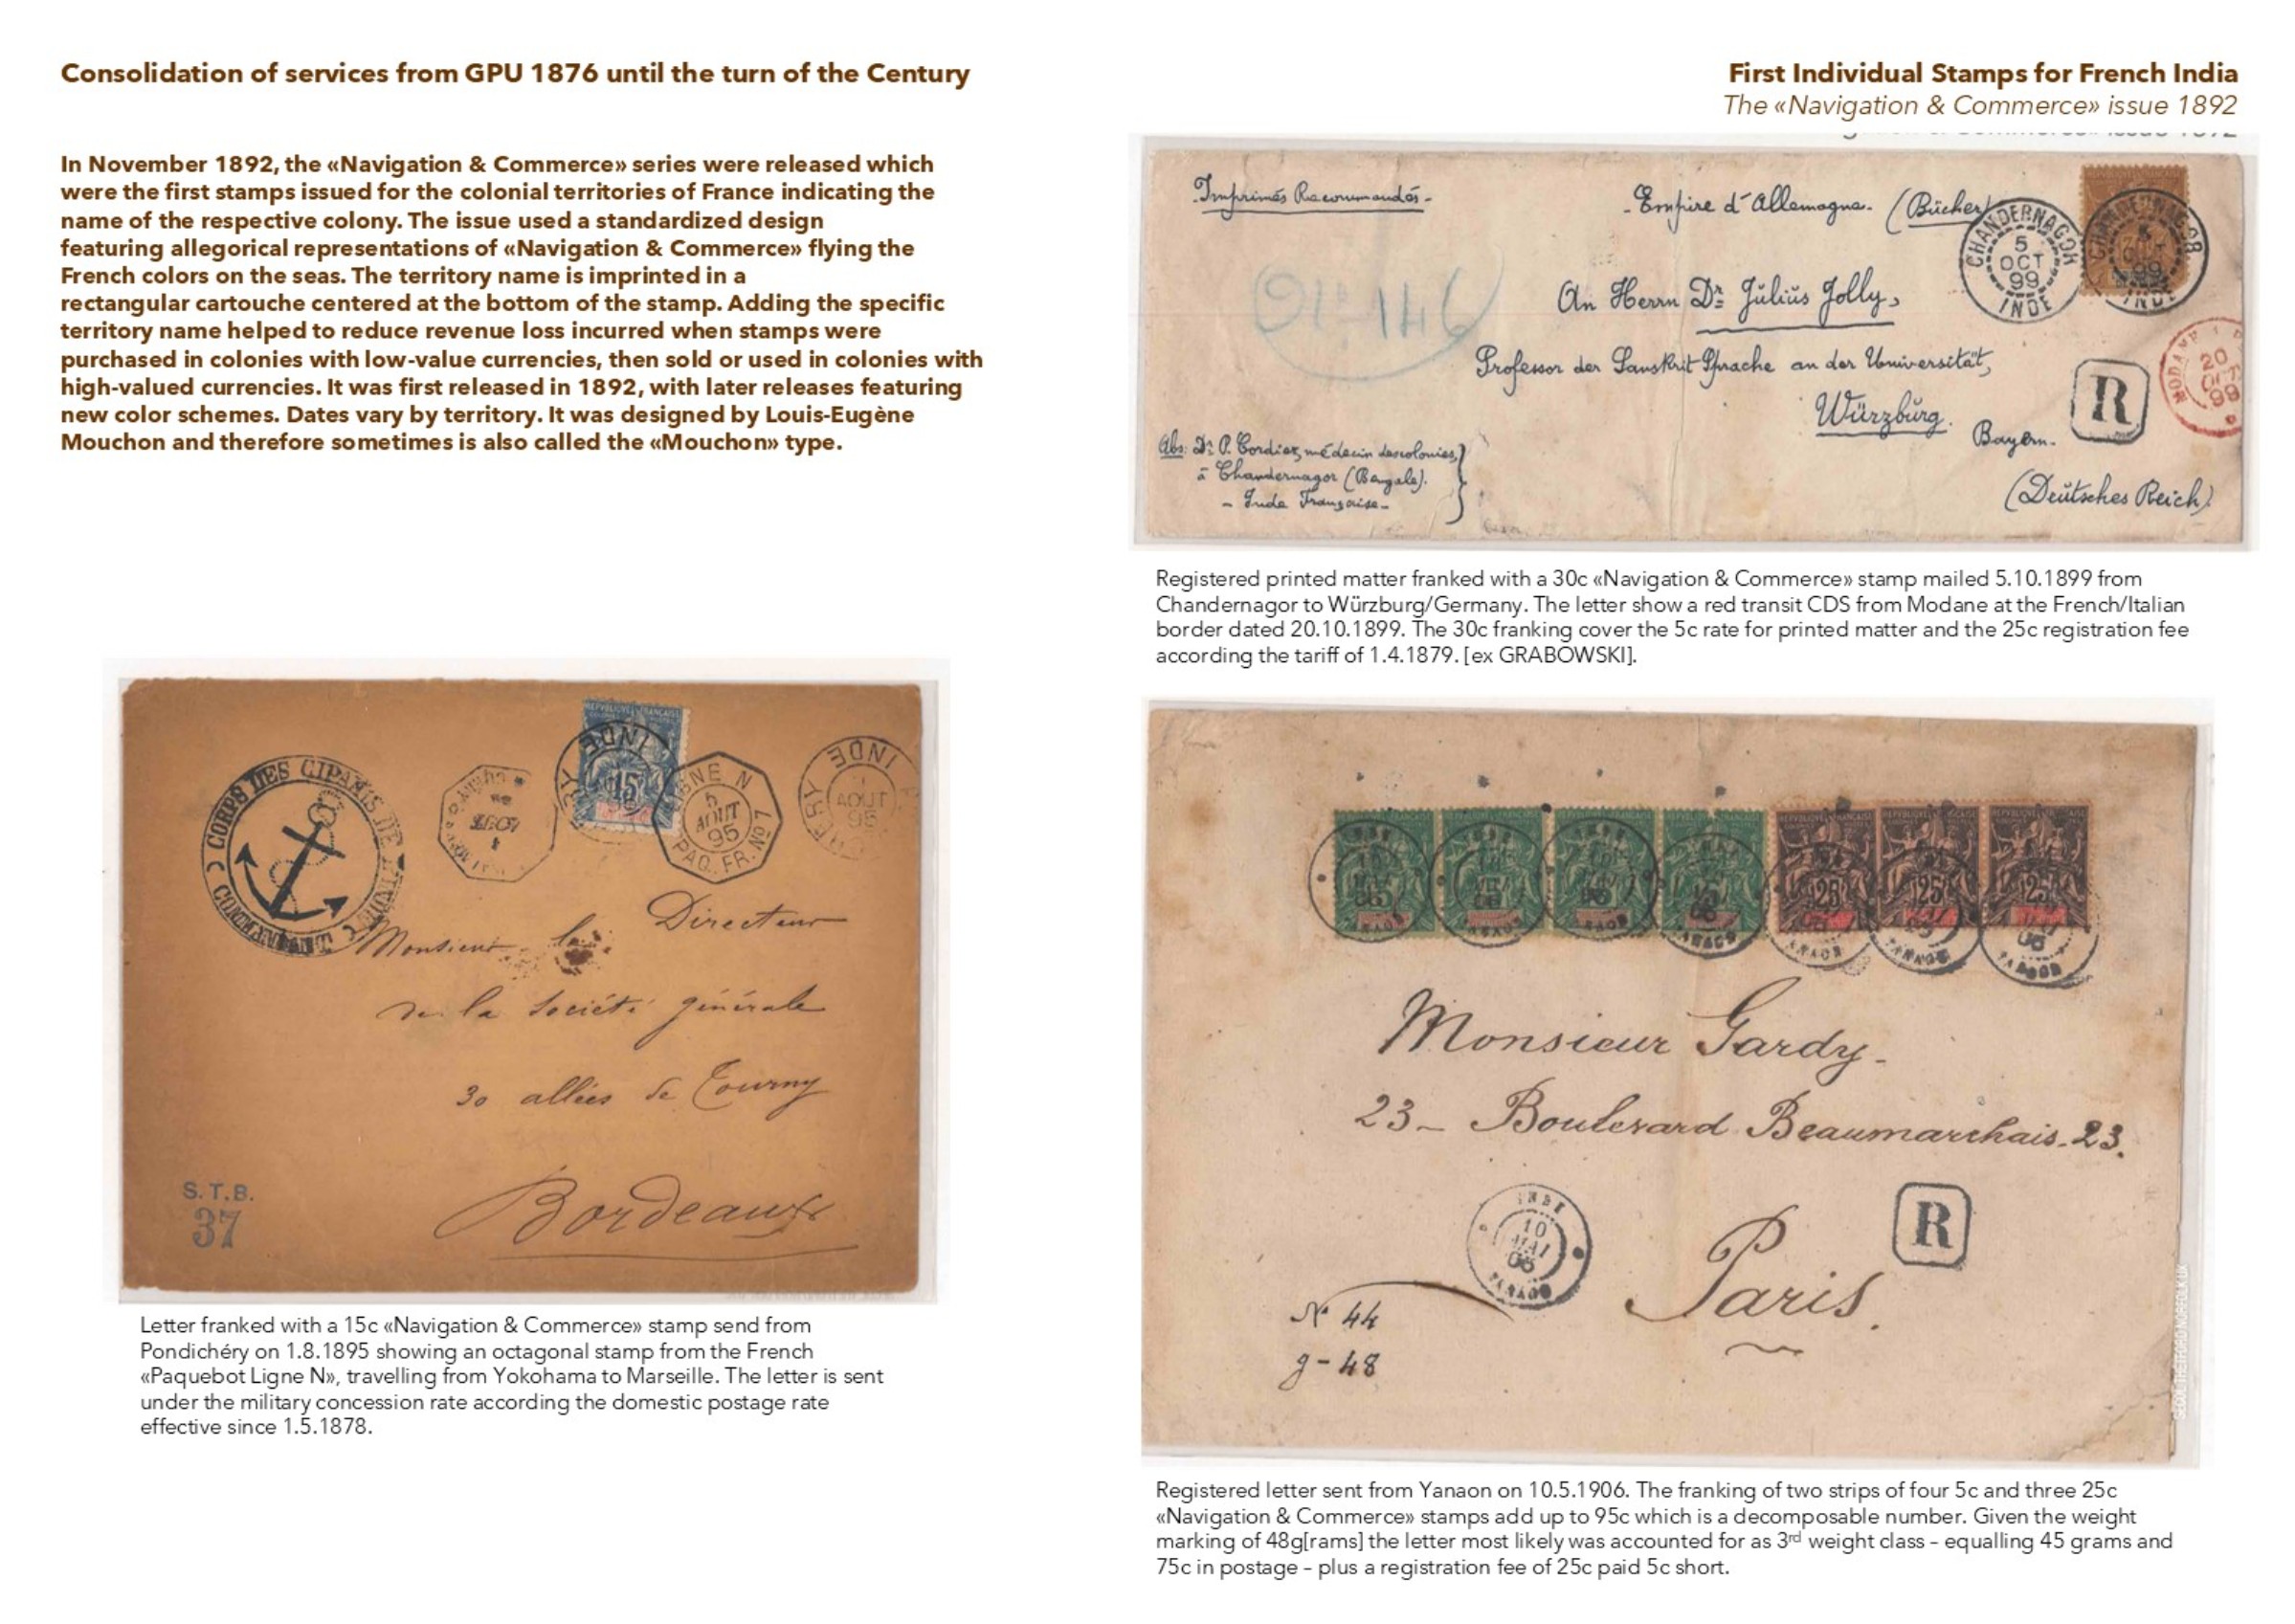 Consolidation of services from GPU 1876 until the turn of the Century
First Individual Stamps for French India
The «Navigation & Commerce» issue 1892
In November 1892, the «Navigation & Commerce» series were released which
were the first stamps issued for the colonial territories of France indicating the
name of the respective colony. The issue used a standardized design
featuring allegorical representations of «Navigation & Commerce» flying the
French colors on the seas. The territory name is imprinted in a
rectangular cartouche centered at the bottom of the stamp. Adding the specific
territory name helped to reduce revenue loss incurred when stamps were
purchased in colonies with low-value currencies, then sold or used in colonies with
high-valued currencies. It was first released in 1892, with later releases featuring
new color schemes. Dates vary by territory. It was designed by Louis-Eugène
Mouchon and therefore sometimes is also called the «Mouchon» type.
CORPS DES CIPAHIS DE L'INDE
INDE
15
LIGNE N
5
AOUT
95
PAQ. FR. No 7
INDE
AOUT
95
Monsieur le Directeur
de la Société générale
30 allées de Tourny
Bordeaux
S.T.B.
37
Letter franked with a 15c «Navigation & Commerce» stamp send from
Pondichéry on 1.8.1895 showing an octagonal stamp from the French
«Paquebot Ligne N», travelling from Yokohama to Marseille. The letter is sent
under the military concession rate according the domestic postage rate
effective since 1.5.1878.
Imprimés Recommandés.
Empire d'Allemagne. (Bücher)
CHANDERNAGOR
5
OCT
99
INDE
An Herrn Dr Julius Jolly,
Professor der Sanskrit Sprache an der Universität,
Würzburg.
Bayern.
(Deutsches Reich)
R
MODANE
20
OCT
99
Abs: Dr P. Cordier, médecin des colonies,
à Chandernagor (Bengale).
- Inde Française -
Registered printed matter franked with a 30c «Navigation & Commerce» stamp mailed 5.10.1899 from
Chandernagor to Würzburg/Germany. The letter show a red transit CDS from Modane at the French/Italian
border dated 20.10.1899. The 30c franking cover the 5c rate for printed matter and the 25c registration fee
according the tariff of 1.4.1879. [ex GRABOWSKI].
25 25 25
Monsieur Gardy-
23- Boulevard Beaumarchais-23.
Paris.
R
INDE
10
MAI
06
YANAON
No 44
g-48
Registered letter sent from Yanaon on 10.5.1906. The franking of two strips of four 5c and three 25c
«Navigation & Commerce» stamps add up to 95c which is a decomposable number. Given the weight
marking of 48g[rams] the letter most likely was accounted for as 3rd weight class – equalling 45 grams and
75c in postage – plus a registration fee of 25c paid 5c short.